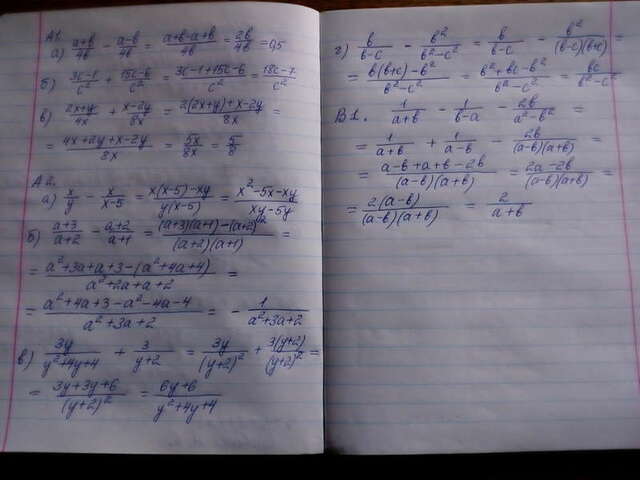 А1.
а) (a+b)/4b − (a−b)/4b = (a+b−a+b)/4b = 2b/4b = 0,5
б) (3c−1)/c² + (15c−6)/c² = (3c−1+15c−6)/c² = (18c−7)/c²
в) (2x+y)/4x + (x−2y)/8x = (2(2x+y)+x−2y)/8x =
= (4x+2y+x−2y)/8x = 5x/8x = 5/8
А2.
а) x/y − x/(x−5) = (x(x−5)−xy)/(y(x−5)) = (x²−5x−xy)/(xy−5y)
б) (a+3)/(a+2) − (a+2)/(a+1) = ((a+3)(a+1)−(a+2)²)/((a+2)(a+1)) =
= (a²+3a+a+3−(a²+4a+4))/(a²+2a+a+2) =
= (a²+4a+3−a²−4a−4)/(a²+3a+2) = − 1/(a²+3a+2)
в) 3y/(y²+4y+4) + 3/(y+2) = 3y/(y+2)² + 3(y+2)/(y+2)² =
= (3y+3y+6)/(y+2)² = (6y+6)/(y²+4y+4)
г) b/(b−c) − b²/(b²−c²) = b/(b−c) − b²/((b−c)(b+c)) =
= (b(b+c)−b²)/(b²−c²) = (b²+bc−b²)/(b²−c²) = bc/(b²−c²)
В1. 1/(a+b) − 1/(b−a) − 2b/(a²−b²) =
= 1/(a+b) + 1/(a−b) − 2b/((a−b)(a+b)) =
= (a−b+a+b−2b)/((a−b)(a+b)) = (2a−2b)/((a−b)(a+b)) =
= 2(a−b)/((a−b)(a+b)) = 2/(a+b)